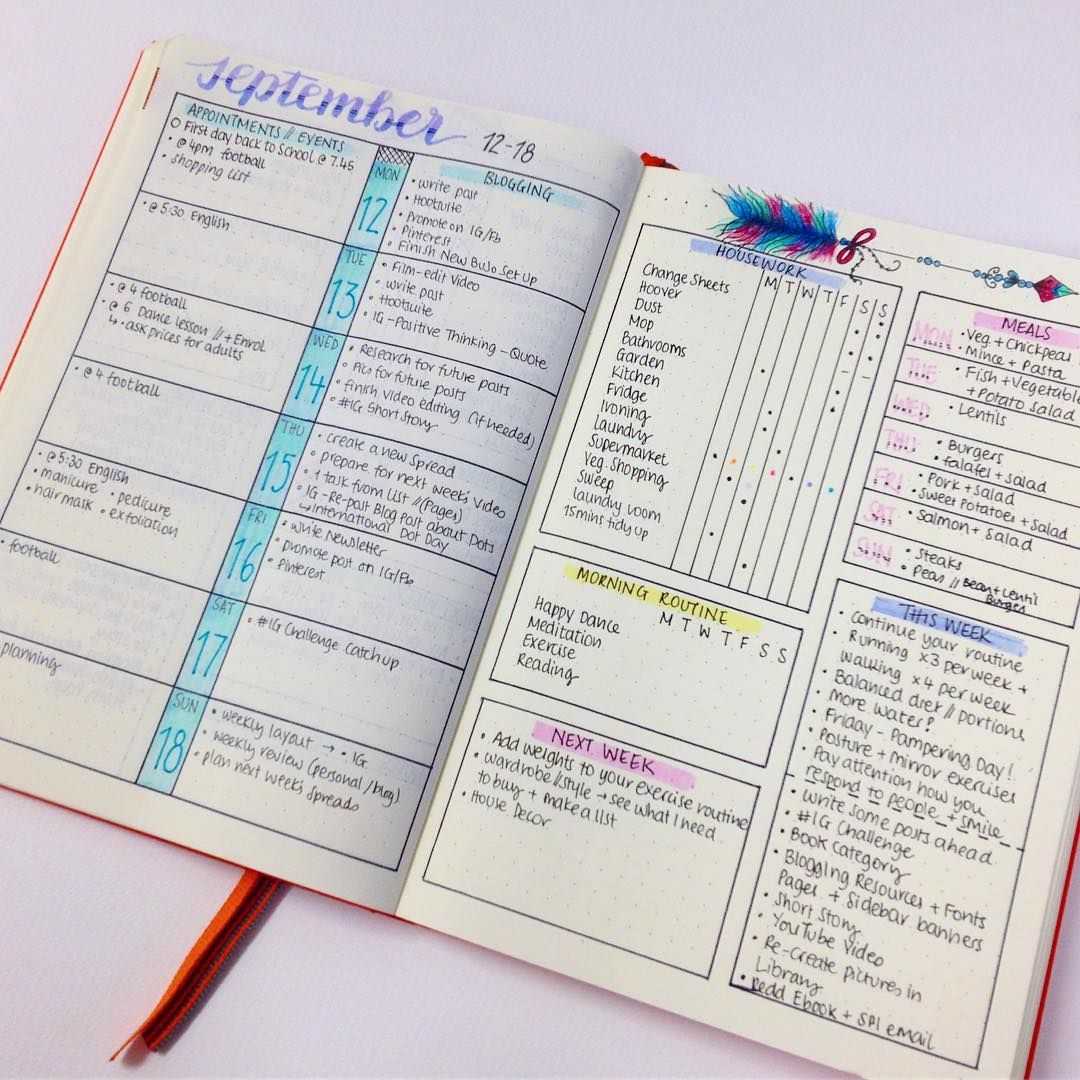 september 12-18
APPOINTMENTS // EVENTS
O First day back to School @ 7.45
• @ 4pm football
• shopping list
• @ 5:30 English
• @ 4 football
• @ 6 Dance lesson // + Enrol
↳ • ask prices for adults
• @ 4 football
• @ 5:30 English
• manicure • pedicure
• hair mask • exfoliation
• football
planning
MON
12
TUE
13
WED
14
THU
15
FRI
16
SAT
17
SUN
18
BLOGGING
• write post
• Hootsuite
• Promote on IG/Fb
• Pinterest
• Finish New BuJo Set Up
• Film-edit Video
• write post
• Hootsuite
• IG-Positive Thinking - Quote
• Research for future posts
• Pics for future posts
• finish video editing (if needed)
• #IG Short Story
• create a new spread
• prepare for next week's video
• 1 task from list // (Pages)
• IG-Re-Post Blog Post about Dots
↳ International Dot Day
• write Newsletter
• promote post on IG/Fb
• Pinterest
• #IG Challenge Catch up
• weekly layout → • IG
• weekly review (personal/blog)
• plan next week's spreads
HOUSEWORK
M T W T F S S
Change Sheets
Hoover
Dust
Mop
Bathrooms
Garden
Kitchen
Fridge
Ironing
Laundry
Supermarket
Veg. Shopping
Sweep
laundry room
15mins tidy up
MORNING ROUTINE
M T W T F S S
Happy Dance
Meditation
Exercise
Reading
NEXT WEEK
• Add weights to your exercise routine
• wardrobe//style → see what I need
to buy + make a list
• House Decor
MEALS
MON • Veg. + Chickpea
• Mince + Pasta
TUE • Fish + Vegetable
+ Potato salad
WED • Lentils
THU • Burgers
• falafel + salad
FRI • Pork + Salad
• Sweet Potatoes + Salad
SAT • Salmon + Salad
SUN • Steaks
• Peas // Bean + Lentil
Burger
THIS WEEK
• Continue your routine
• Running x3 per week +
Walking x4 per week
• Balanced diet // portions
• more water!
• Friday - Pampering Day!
• Posture + mirror exercises
• Pay attention how you
respond to people + smile
• write some posts ahead
• #IG Challenge
• Book Category
• Blogging Resources + Fonts
Pages + Sidebar banners
• Short Story
• YouTube Video
• Re-create pictures in
Library
• read Ebook + SPI email